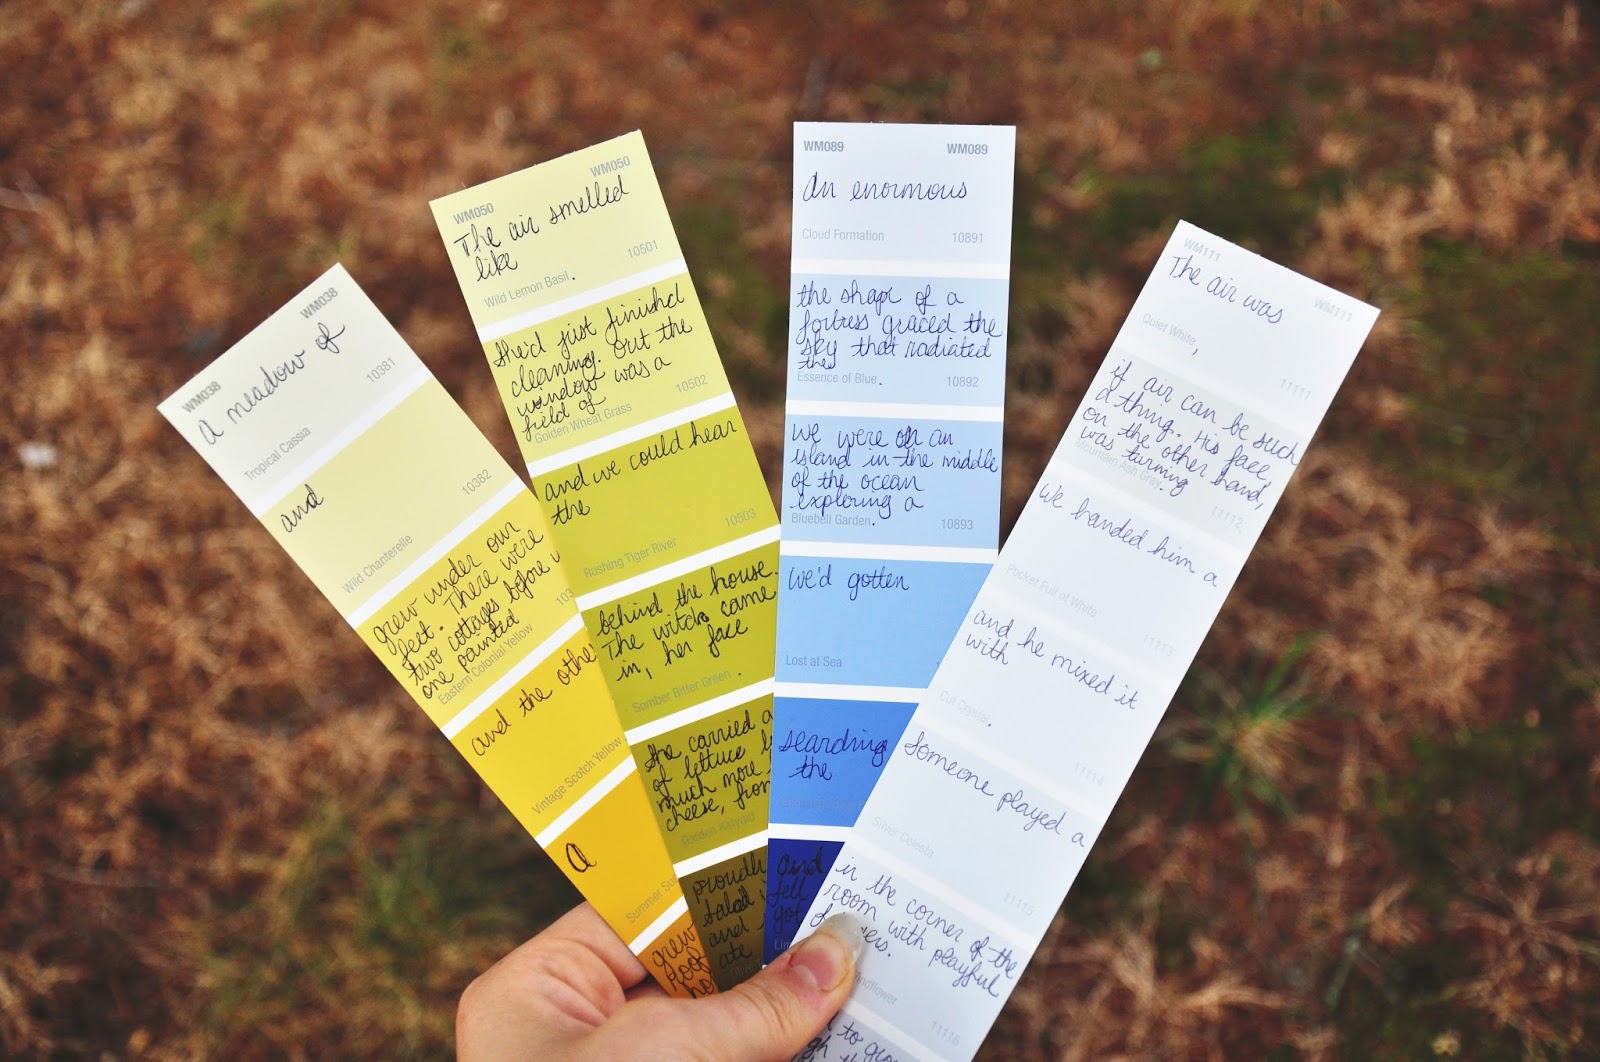 WM038 WM038
a meadow of
Tropical Cassia 10381
and
Wild Chanterelle 10382
grew under our
feet. There were
two cottages before
one painted
Eastern Colonial Yellow 103
and the other
Vintage Scotch Yellow
a
Summer
grew
WM050 WM050
The air smelled
like
Wild Lemon Basil. 10501
She'd just finished
cleaning. Out the
window was a
field of
Golden Wheat Grass 10502
and we could hear
the
Rushing Tiger River 10503
behind the house.
The witch came
in, her face
Somber Bitter Green.
She carried a
of lettuce
much more
cheese, from
Garden Katydid
proudly
salad
and
ate
WM089 WM089
An enormous
Cloud Formation 10891
the shape of a
fortress graced the
sky that radiated
the
Essence of Blue. 10892
We were on an
island in the middle
of the ocean
exploring a
Bluebell Garden. 10893
We'd gotten
Lost at Sea
searching
the
and
fell
got
WM111 WM111
The air was
Quiet White, 11111
if air can be such
a thing. His face,
on the other hand,
was turning
Mountain Ash Gray. 11112
We handed him a
Pocket Full of White 11113
and he mixed it
with
Cut Crystal. 11114
Someone played a
Silver Celesta 11115
in the corner of the
room with playful
11116
to